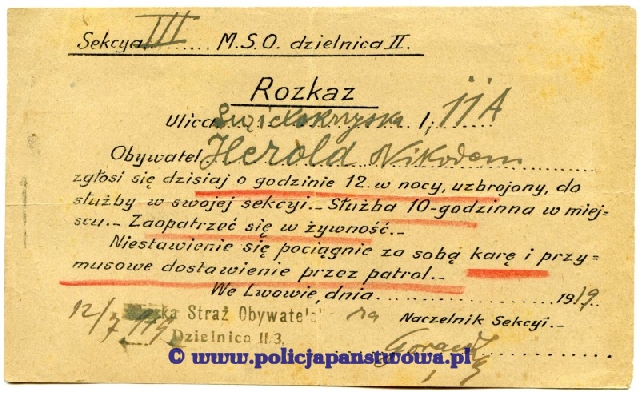 Sekcya III ........ M.S.O. dzielnica II.
Rozkaz
Ulica Świętokrzyska l; 11A
Obywatel Herold Nikodem
zgłosi się dzisiaj o godzinie 12 w nocy, uzbrojony, do
służby w swojej sekcyi.- Służba 10-godzinna w miej-
scu.- Zaopatrzeć się w żywność.-
Niestawienie się pociągnie za sobą karę i przy-
musowe dostawienie przez patrol.-
We Lwowie, dnia ........ 1919
Straż Obywatel
Naczelnik Sekcyi.-
Dzielnica II/3.
© www.policjapanstwowa.pl